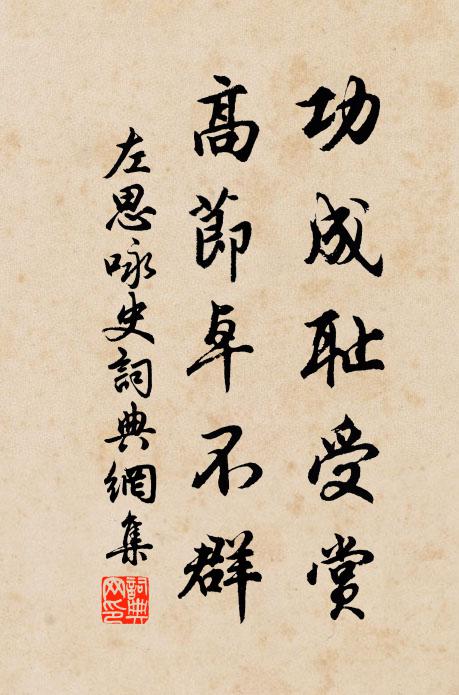 功成耻受赏
高節卓不群
左思咏史詞典網集
詞典網印